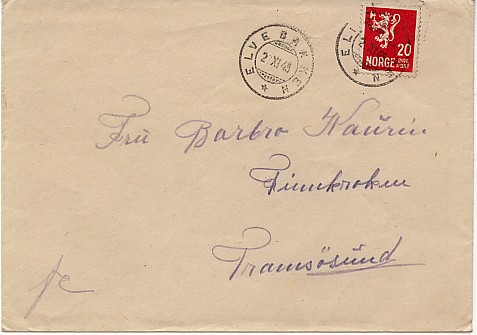 ELVEBAKKEN
2 XI 43
20
NORGE ØRE
POST
Fru Barbro Kaurin.
Finnkroken
Tramsösund